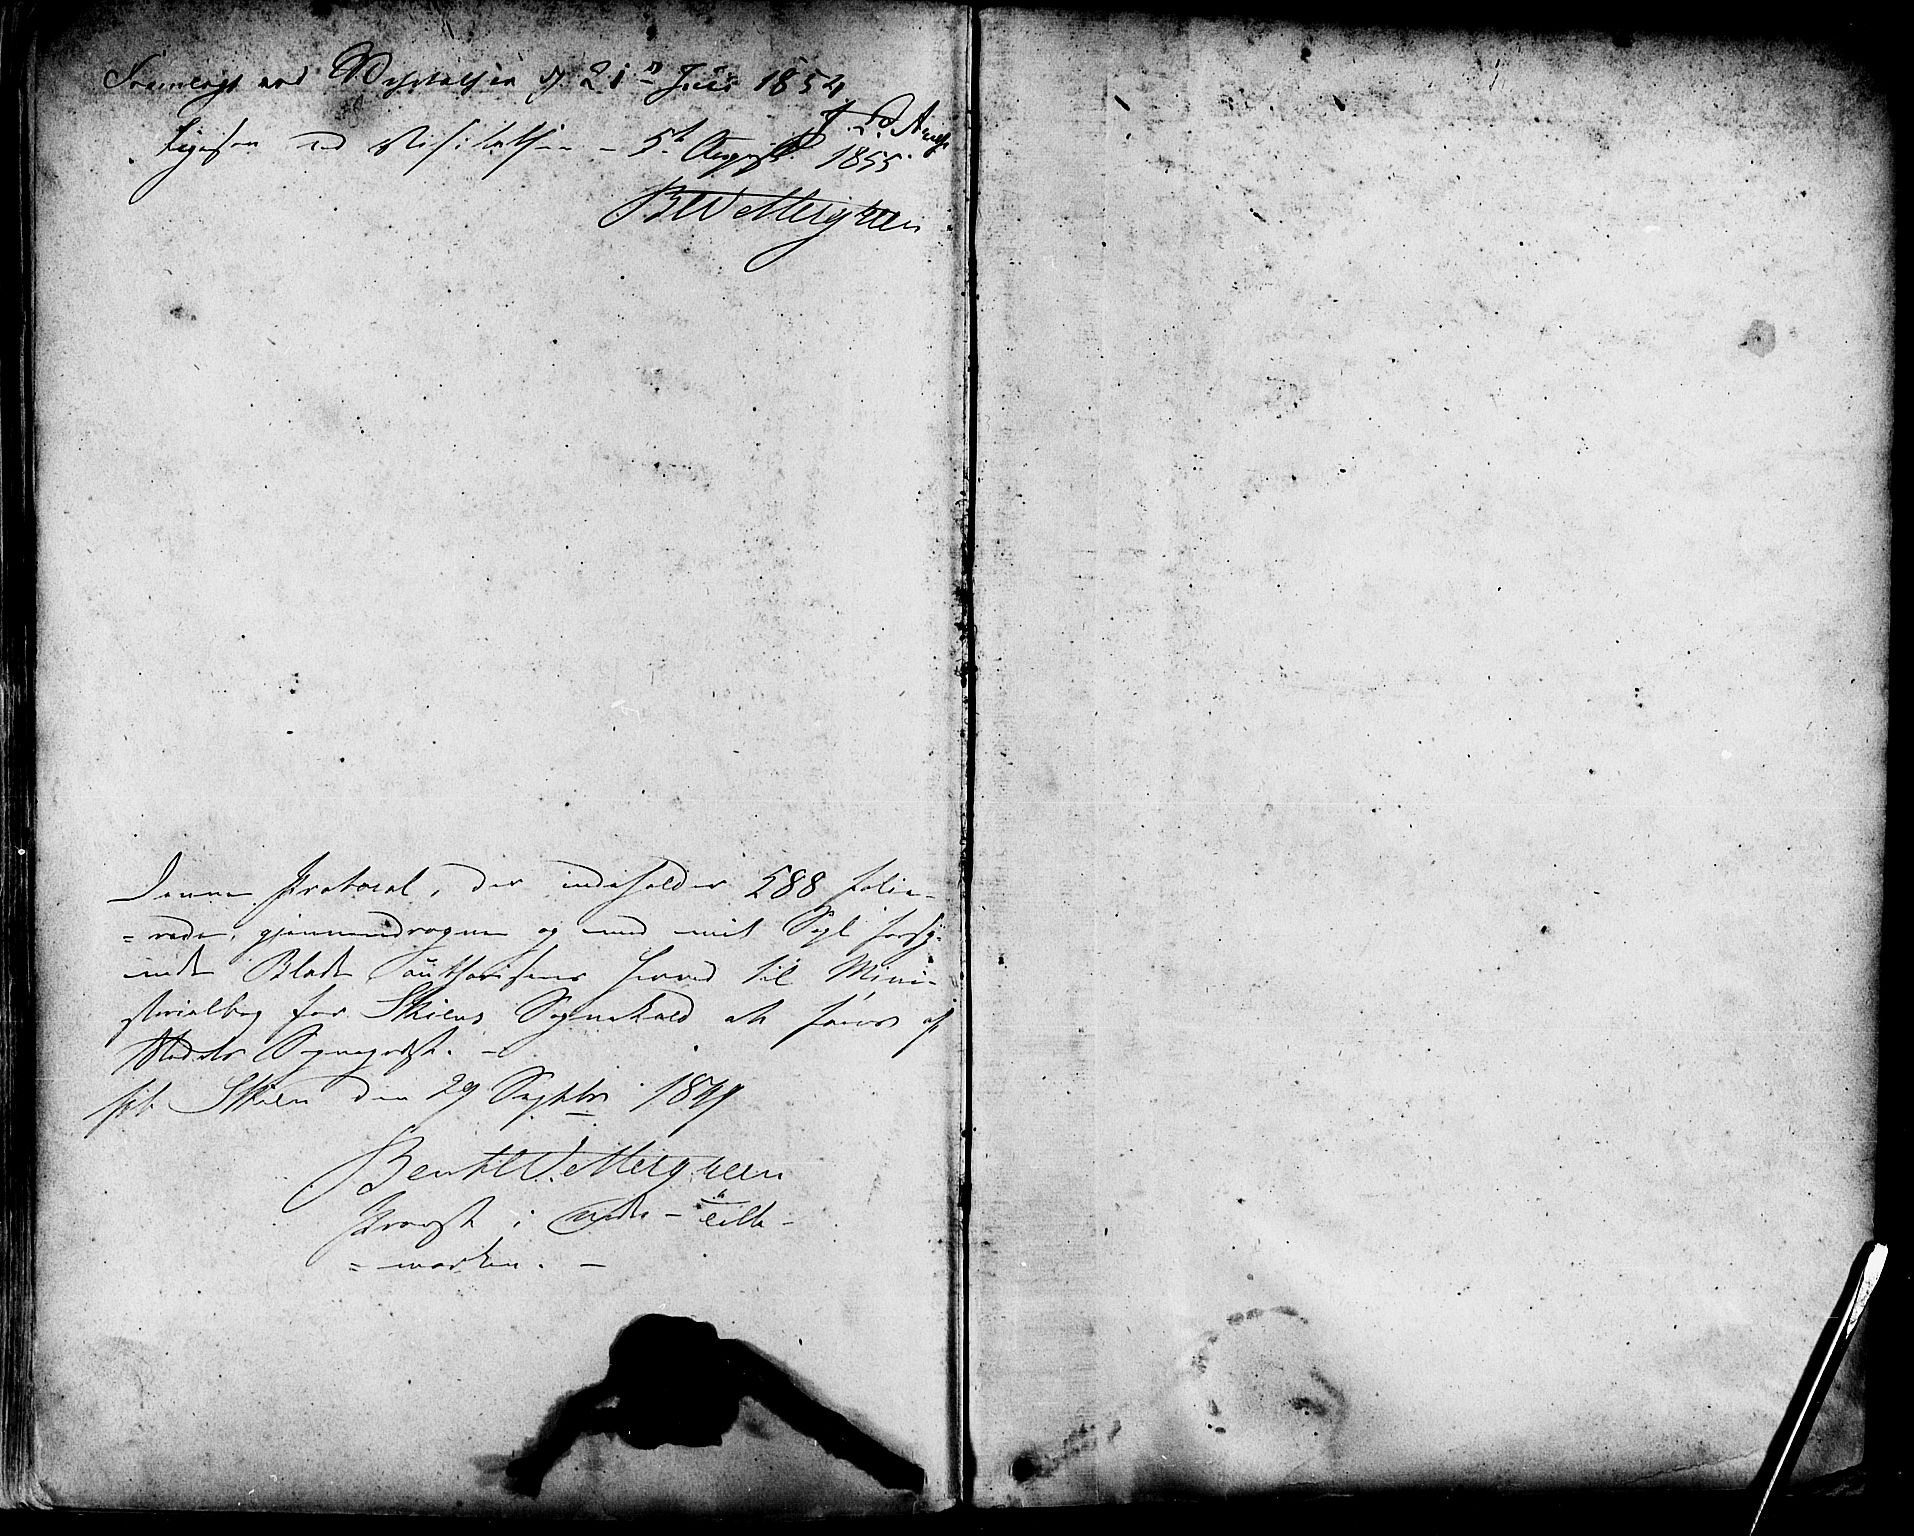 Fremlagt ved Visitatsen d. 21de Juni 1854
J. L. Arup
Ligesaa ved Visitatsen – 5te August 1855.
BWettergreen
Denne Protocol, der indeholder 588 folie-
=rede, gjennemdragne og med mit Segl forsy-
nede Blade authoriseres herved til Mini-
sterialbog for Skiens Sognekald at føres af
Stedets Sognepræst. –
Skien den 29 Septbr 1849
Bent Wettergreen
Provst i Nedre – Telle-
= marken. –